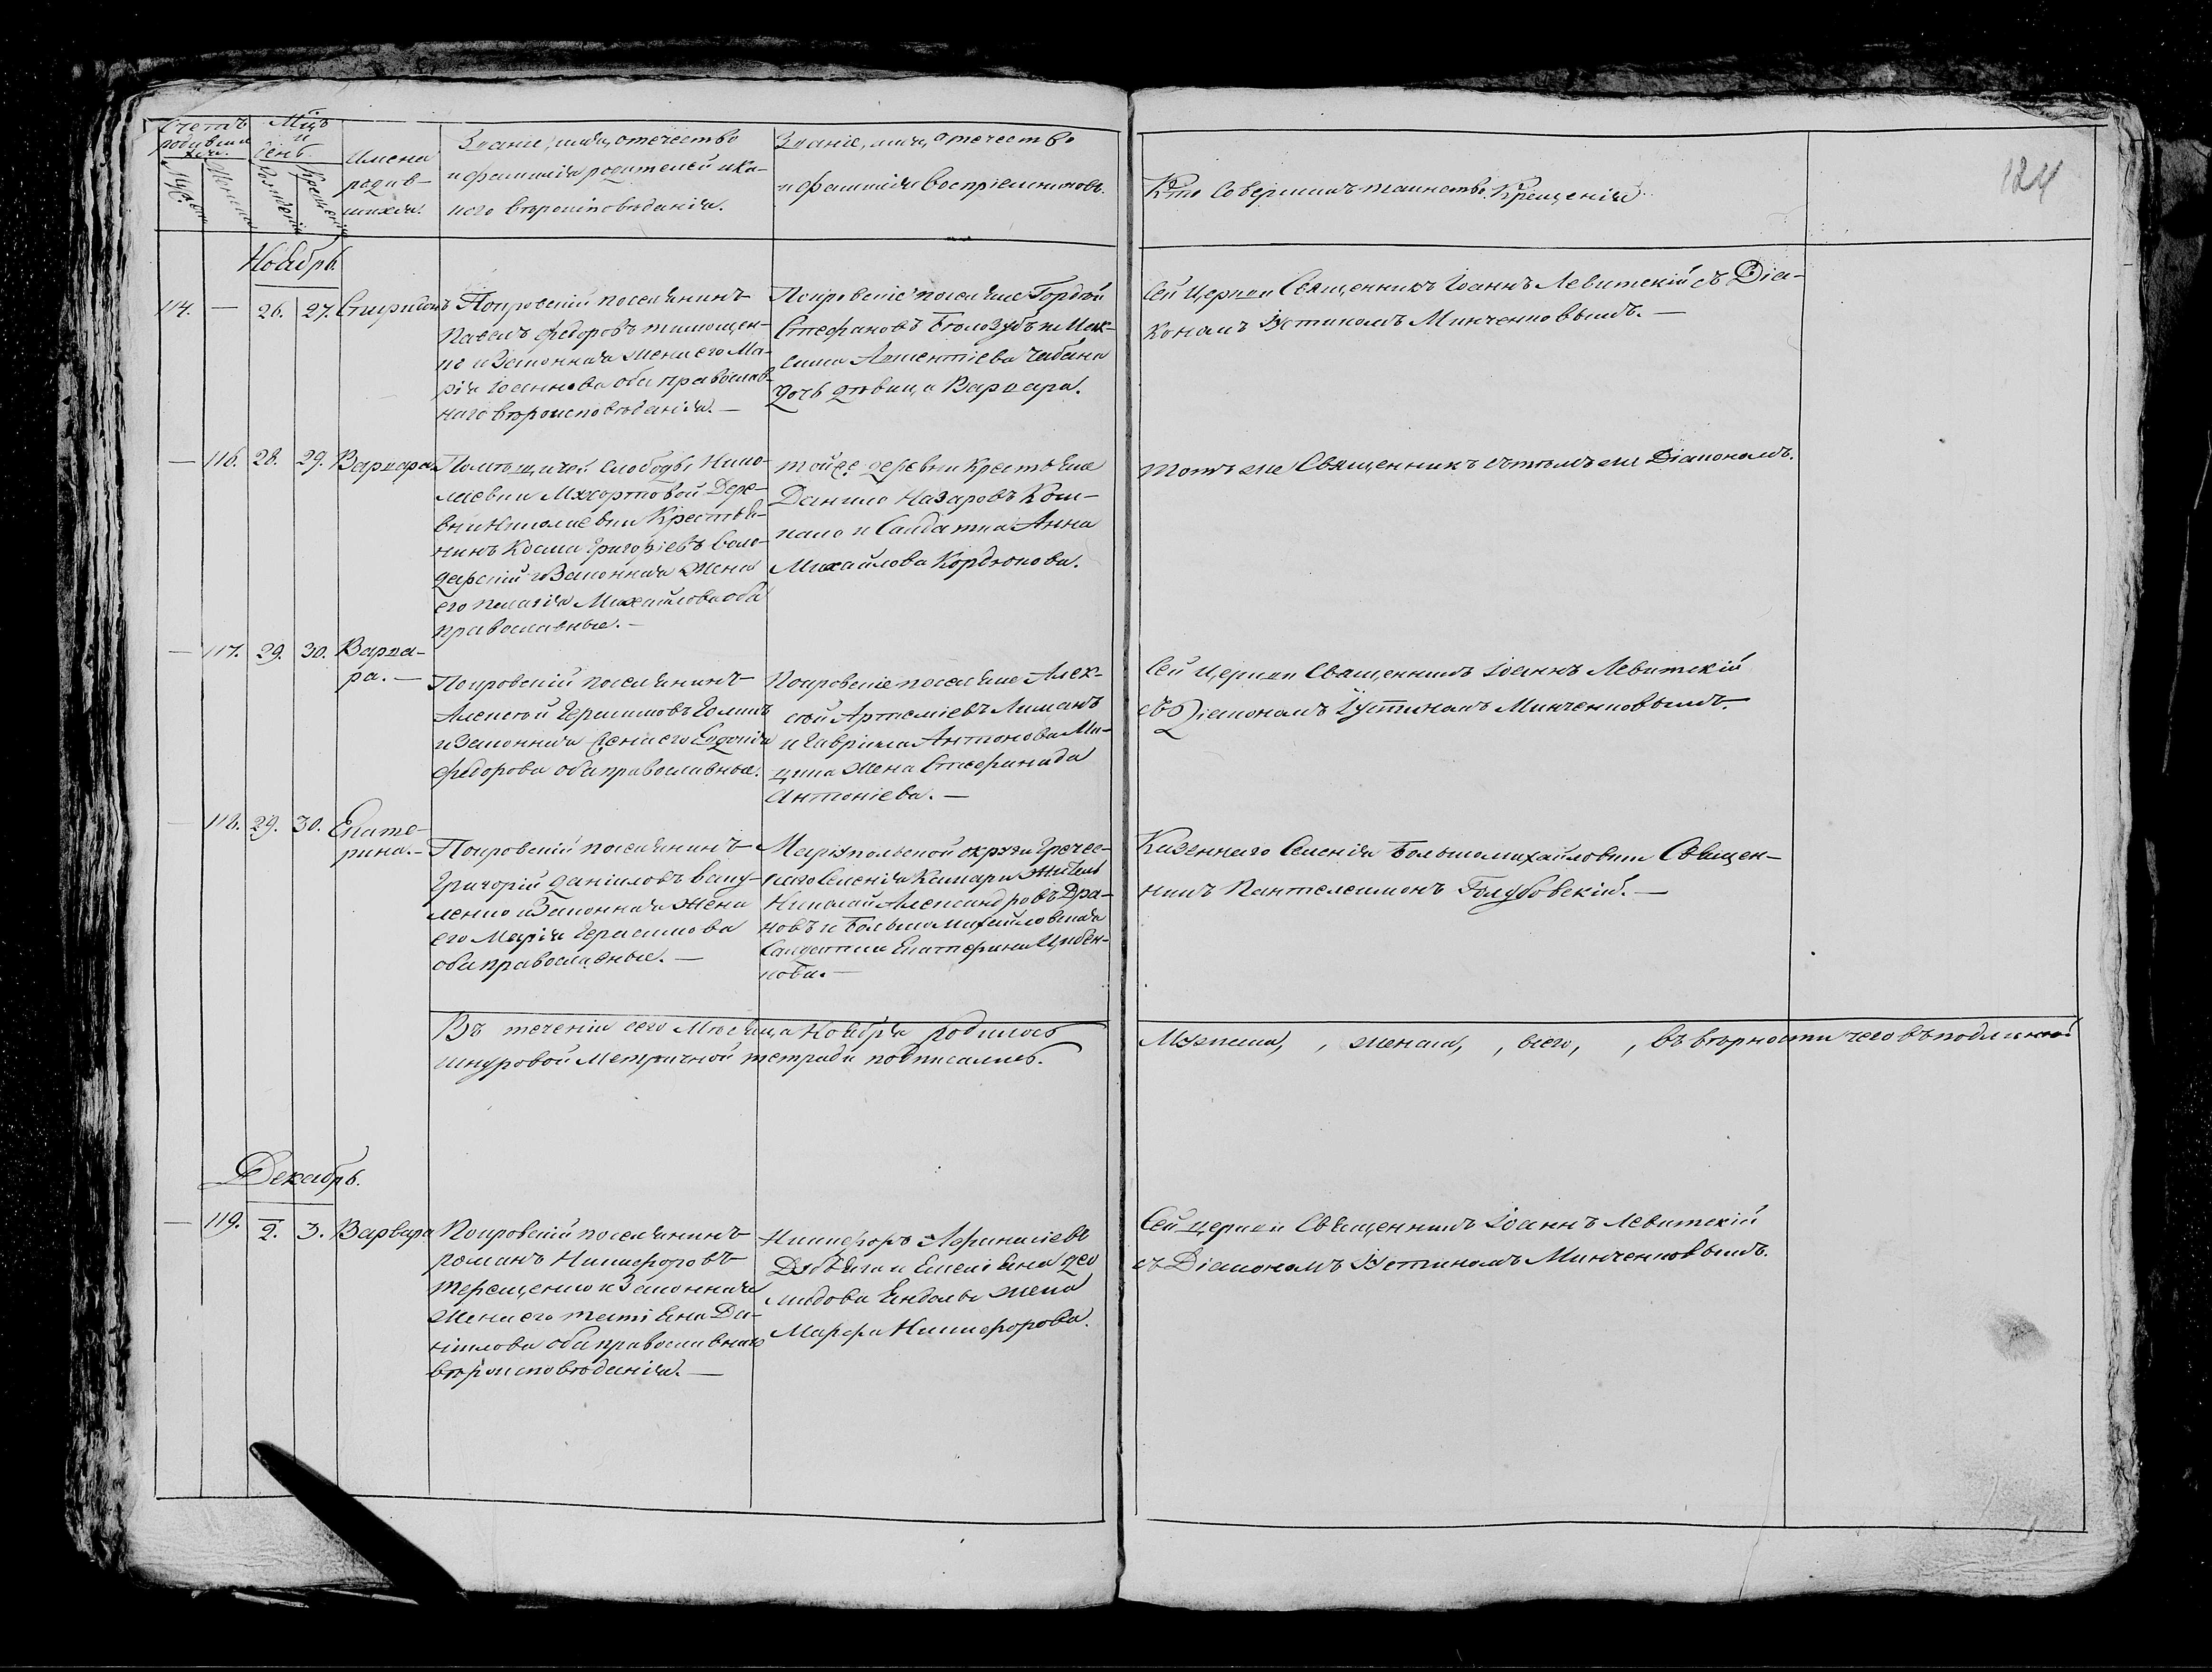 Счетъ родившихся.
Мужескъ
Женска
Мѣсц. и день.
Рожденія
Крещенія
Имена родив-
шихся.
Званіе, имя, отечество
и фамилія родителей и ка-
кого вѣроисповѣданія.
Званіе, имя, отечество
и фамилія воспріемниковъ.
Кто совершилъ таинство Крещенія
124
Ноябрь.
114. — 26. 27. Спиридонъ
Покровскій поселянинъ
Павелъ Федоровъ Тимощен-
ко и законная жена его Ма-
рія Іоаннова оба православ-
наго вѣроисповѣданія. —
Покровскіе поселяне Гордѣй
Стефановъ Бѣлозубъ и Мак-
сима Чабана
дочь дѣвица Варвара.
Сей Церкви Священникъ Іоаннъ Левитскій съ Діа-
кономъ Іустиномъ Минченковымъ. —
— 116. 28. 29. Варвара
Помѣщичой слободы Нико-
лаевки Дере-
вни Николаевки Крестья-
нинъ Косма Григоріевъ Воло-
дарскій и законная жена
его Пелагія Михайлова оба
православные. —
той же деревни Крестьяне
Данило Назаровъ Кош-
кало и Солдатка Анна
Михайлова Кордюкова.
тотъ же Священникъ съ тѣмъ же Діакономъ.
— 117. 29. 30. Варва-
ра. —
Покровскій поселянинъ
Алексѣй Герасимовъ
и законная жена его Евдокія
Федорова оба православные.
Покровскіе поселяне Алек-
сѣй Артеміевъ Лиманъ
и Гавриила Антонова Ми-
жена Стефанида
Антоніева. —
Сей Церкви Священникъ Іоаннъ Левитскій
съ Діакономъ Іустиномъ Минченковымъ.
— 118. 29. 30. Екате-
рина. —
Покровскій поселянинъ
Григорій Даніиловъ Ваку-
ленко и законная жена
его Марія Герасимова
оба православные. —
Маріупольской округи Гречес-
каго Селенія Камари житель
Николай Александровъ Дра-
новъ и Большемихайловская
Солдатка Екатерина Цибен-
кова. —
Казеннаго Селенія Большемихайловки Священ-
никъ Пантелеимонъ Голубовскій. —
Въ теченіи сего Мѣсяца Ноября родилось
Мужеска, , женска, , всего, , въ вѣрности чего въ подлинной
шнуровой Метричной тетради подписались.
Декабрь.
— 119. 2. 3. Варвара
Покровскій поселянинъ
Романъ Никифоровъ
Терещенко и законная
жена его Татіяна Да-
ніилова оба православнаго
вѣроисповѣданія. —
Никифоръ Афанасіевъ
и Емеліяна
жена
Марфа Никифорова.
Сей церкви Священникъ Іоаннъ Левитскій
съ Діакономъ Іустиномъ Минченковымъ.